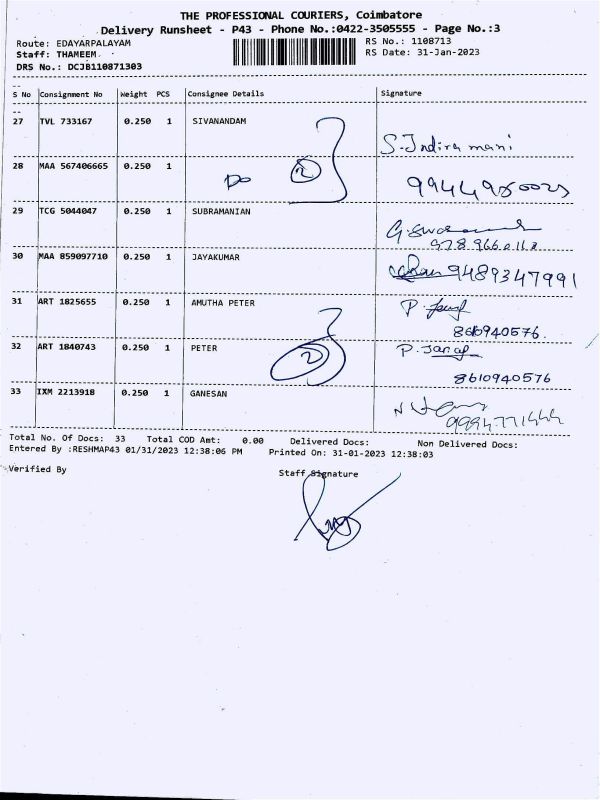 THE PROFESSIONAL COURIERS, Coimbatore
Delivery Runsheet - P43 - Phone No.:0422-3505555 - Page No.:3
Route: EDAYARPALAYAM RS No.: 1108713
Staff: THAMEEM. RS Date: 31-Jan-2023
DRS No.: DCJB110871303
S No Consignment No Weight PCS Consignee Details Signature
27 TVL 733167 0.250 1 SIVANANDAM
S. Indira mani
28 MAA 567406665 0.250 1
Do 2
29 TCG 5044047 0.250 1 SUBRAMANIAN
30 MAA 859097710 0.250 1 JAYAKUMAR
9489347991
31 ART 1825655 0.250 1 AMUTHA PETER
8610940576
32 ART 1840743 0.250 1 PETER
2
8610940576
33 IXM 2213918 0.250 1 GANESAN
Total No. Of Docs: 33 Total COD Amt: 0.00 Delivered Docs: Non Delivered Docs:
Entered By :RESHMAP43 01/31/2023 12:38:06 PM Printed On: 31-01-2023 12:38:03
Verified By Staff Signature